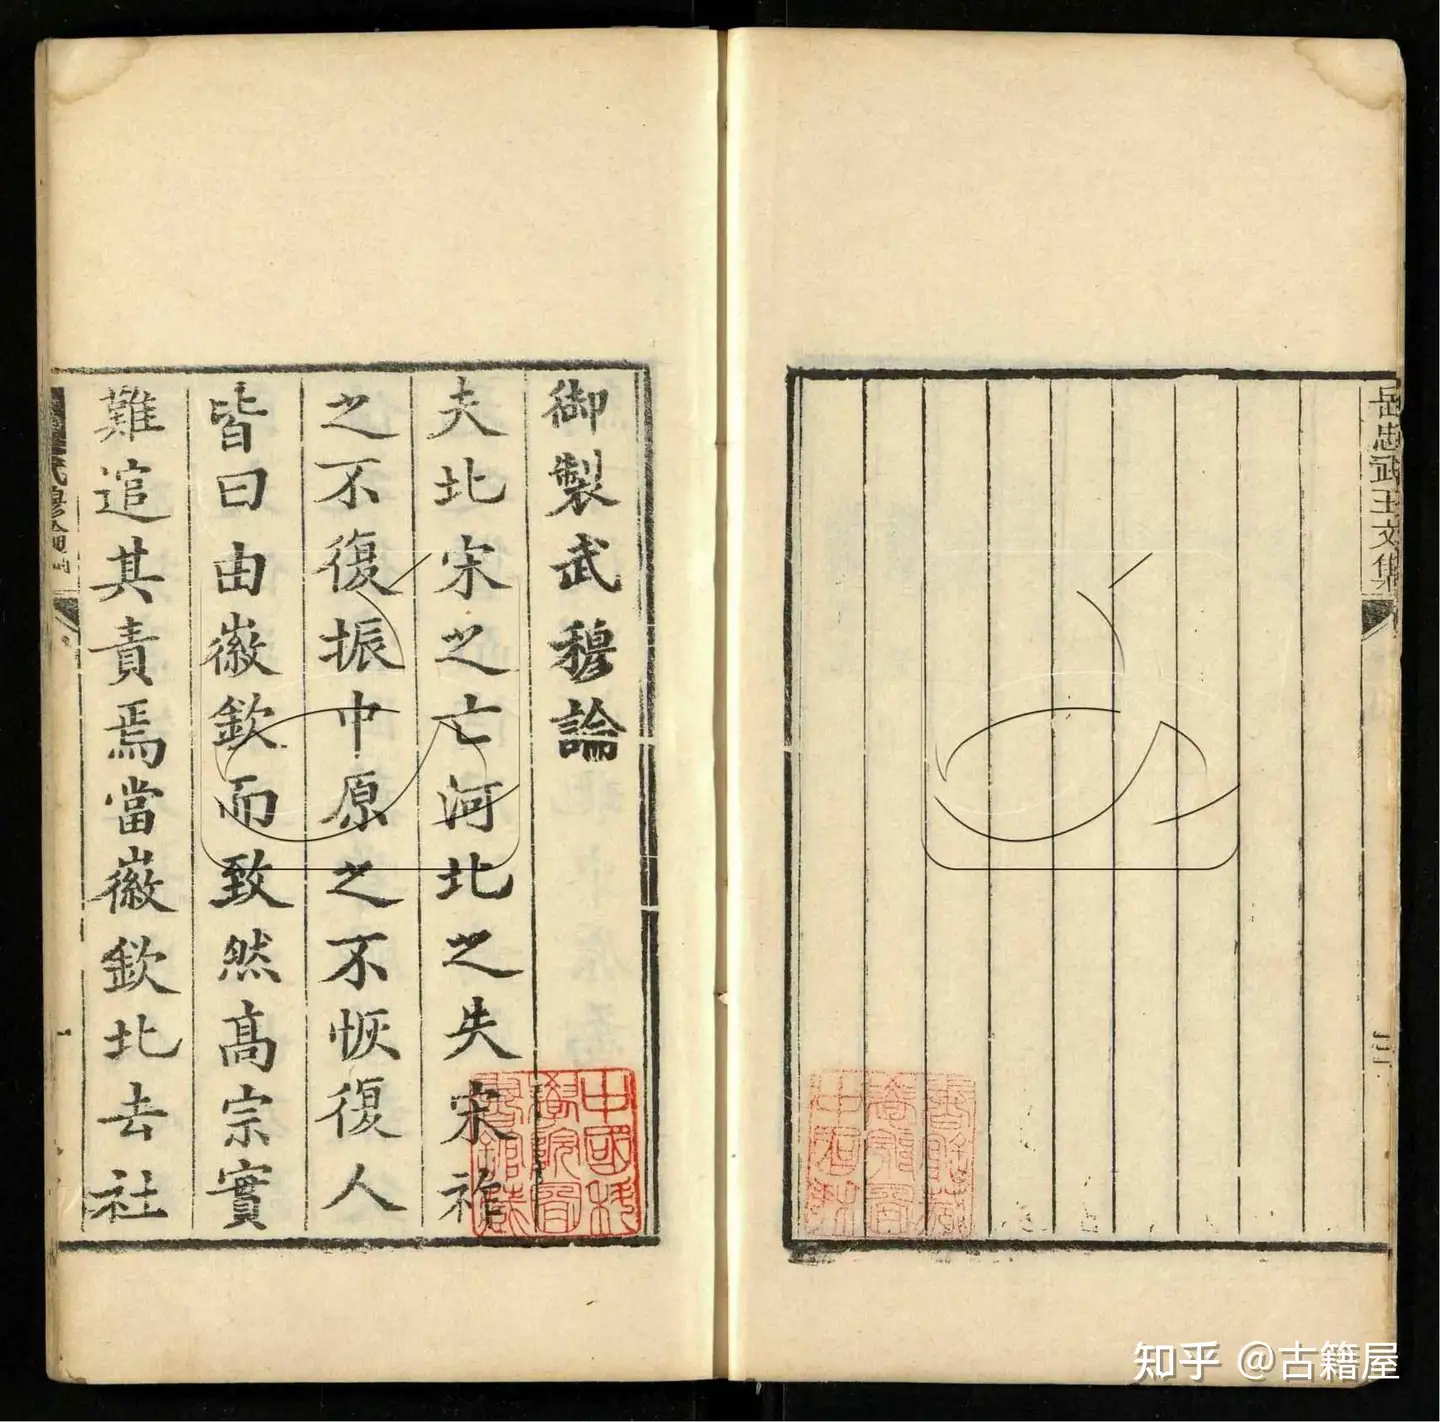 岳忠武王文集
三
御製武穆論
夫北宋之亡河北之失宋祚
之不復振中原之不恢復人
皆曰由徽欽而致然高宗實
難逭其責焉當徽欽北去社
武穆論
一
中國科
學院圖
書館藏
知乎 @古籍屋